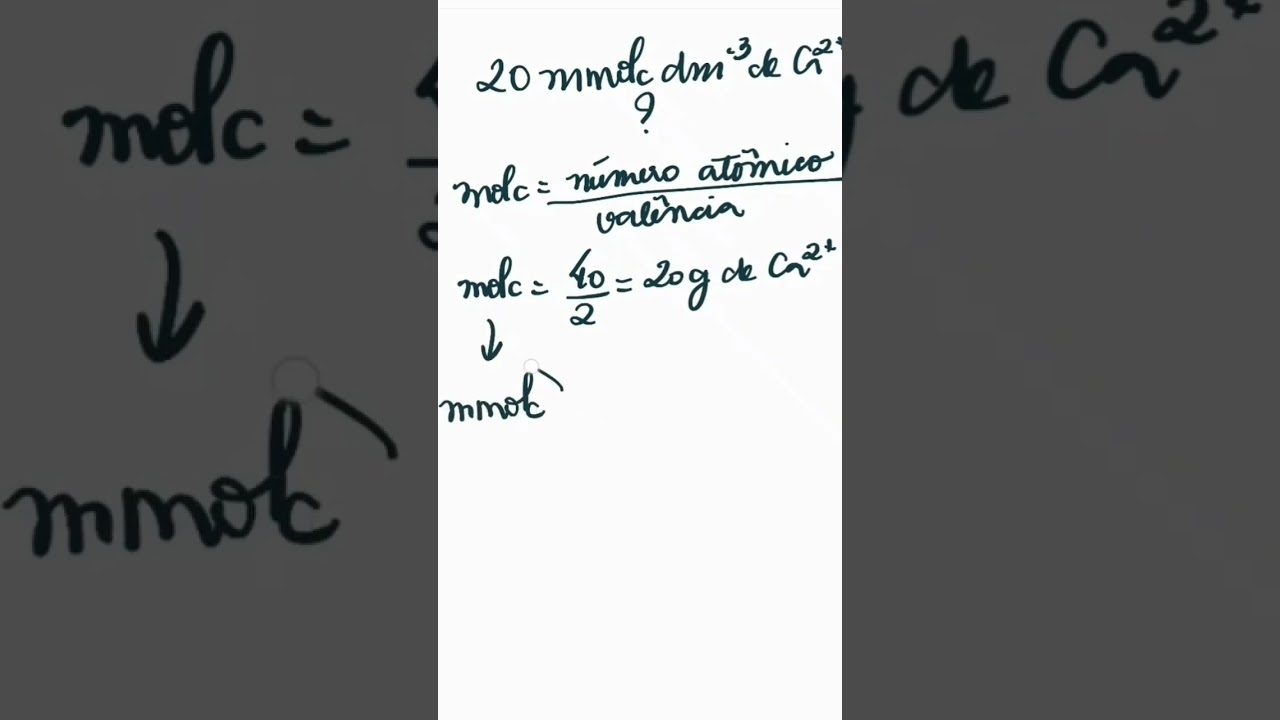 20 mmolc dm⁻³ de Ca²⁺
?
molc = número atômico
valência
molc = 40 = 20g de Ca²⁺
2
↓
mmolc